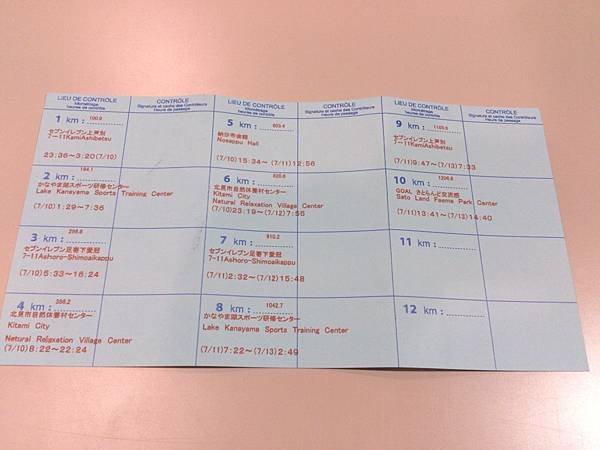 LIEU DE CONTRÔLE
kilométrage
heures de contrôle
CONTRÔLE
Signature et cachet des Contrôleurs
Heure de passage
1 km : 100.9
セブンイレブン上芦別
7-11KamiAshibetsu
23:36~3:20(7/10)
2 km : 194.1
かなやま湖スポーツ研修センター
Lake Kanayama Sports Training Center
(7/10)1:29~7:36
3 km : 296.8
セブンイレブン足寄下愛冠
7-11Ashoro-Shimoaikappu
(7/10)5:33~16:24
4 km : 386.2
北見市自然休養村センター
Kitami City
Natural Relaxation Village Center
(7/10)8:22~22:24
LIEU DE CONTRÔLE
kilométrage
heures de contrôle
CONTRÔLE
Signature et cachet des Contrôleurs
Heure de passage
5 km : 603.4
納沙布会館
Nosappu Hall
(7/10)15:34~ (7/11)12:56
6 km : 820.8
北見市自然休養村センター
Kitami City
Natural Relaxation Village Center
(7/10)23:19~(7/12)7:55
7 km : 910.2
セブンイレブン足寄下愛冠
7-11Ashoro-Shimoaikappu
(7/11)2:32~(7/12)15:48
8 km : 1042.7
かなやま湖スポーツ研修センター
Lake Kanayama Sports Training Center
(7/11)7:22~(7/13)2:49
LIEU DE CONTRÔLE
kilométrage
heures de contrôle
CONTRÔLE
Signature et cachet des Contrôleurs
Heure de passage
9 km :
セブンイレブン上芦別
7-11KamiAshibetsu
(7/11)9:47~(7/13)7:33
10 km : 1206.8
GOAL さとらんど交流館
Sato Land Faema Park Center
(7/11)13:41~(7/13)14:40
11 km :
12 km :